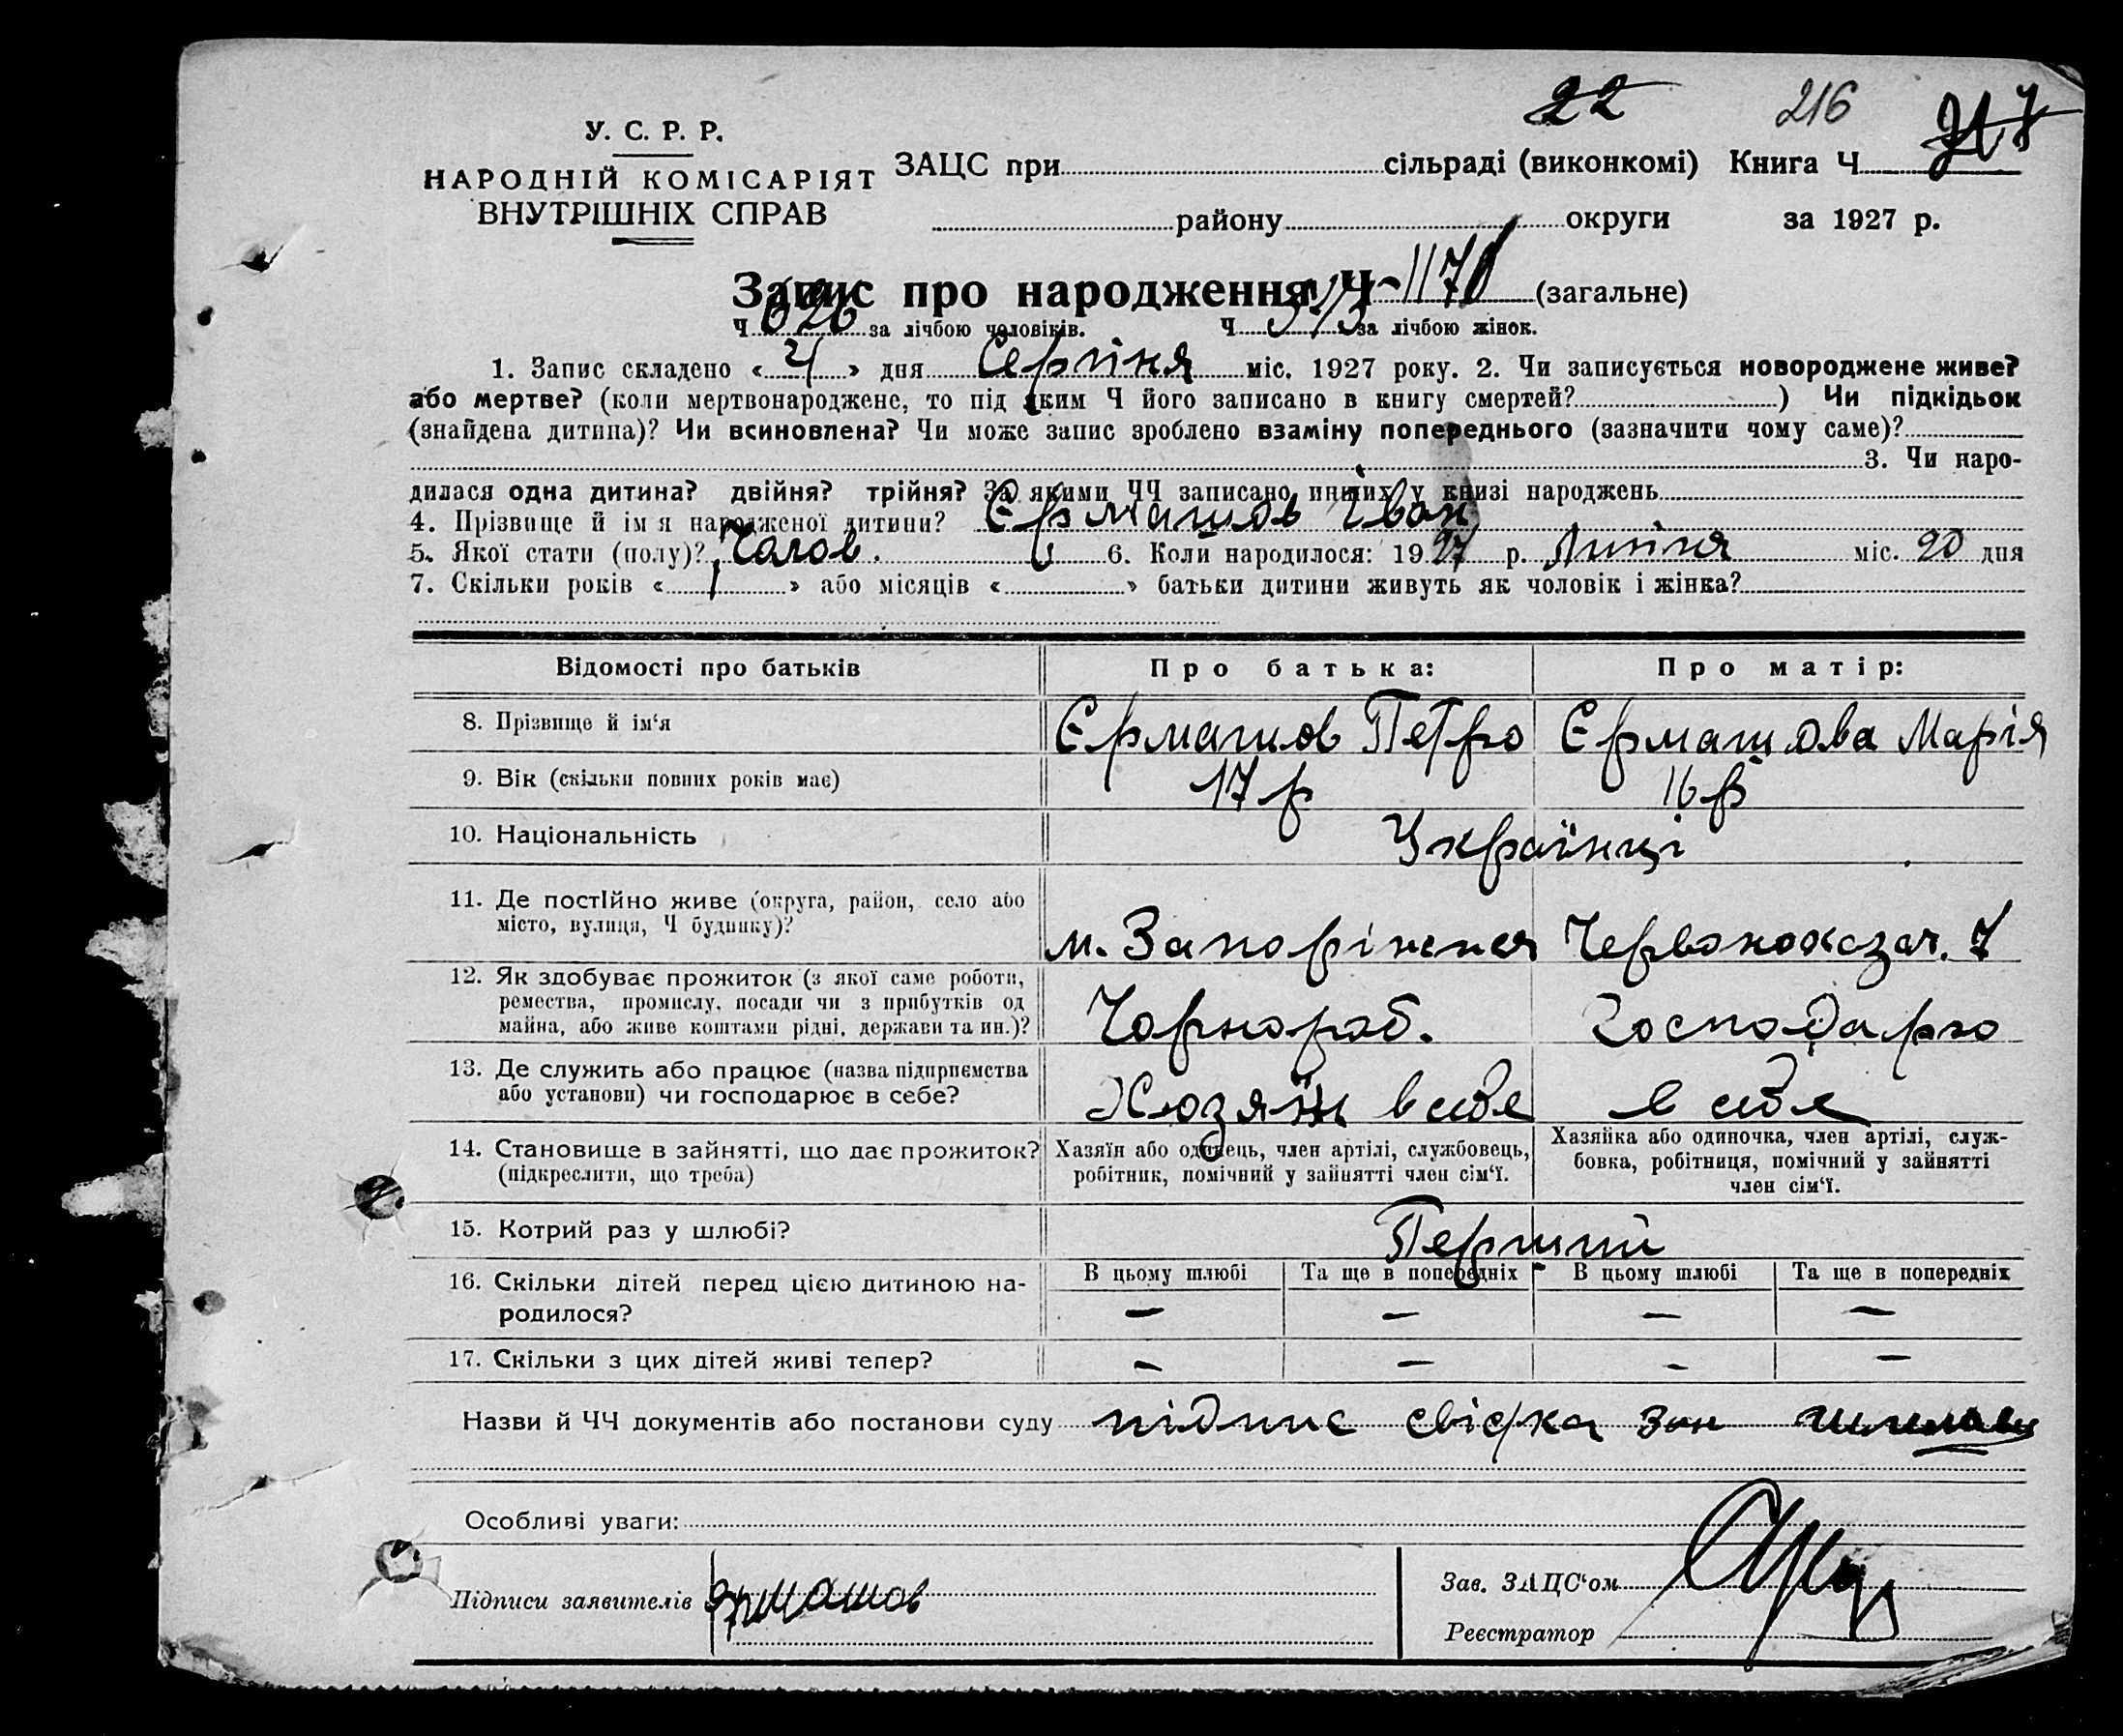 22 216
У. С. Р. Р.
НАРОДНІЙ КОМІСАРІЯТ
ВНУТРІШНІХ СПРАВ
ЗАЦС при сільраді (виконкомі) Книга Ч
району округи за 1927 р.
Запис про народження Ч 1170 (загальне)
Ч 626 за лічбою чоловіків. Ч за лічбою жінок.
1. Запис складено « 4 » дня Серпіня міс. 1927 року. 2. Чи записується новороджене живе?
або мертве? (коли мертвонароджене, то під яким Ч його записано в книгу смертей? ) Чи підкідьок
(знайдена дитина)? Чи всиновлена? Чи може запис зроблено взаміну попереднього (зазначити чому саме)?
3. Чи наро-
дилася одна дитина? двійня? трійня? За якими ЧЧ записано инших у книзі народжень
4. Прізвище й ім я народженої дитини? Єрмашов Іван
5. Якої стати (полу)? Чолов. 6. Коли народилося: 1927 р. Липіня міс. 20 дня
7. Скільки років « 1 » або місяців « » батьки дитини живуть як чоловік і жінка?
Відомості про батьків Про батька: Про матір:
8. Прізвище й ім‘я Єрмашов Петро Єрмашова Марія
9. Вік (скільки повних років має) 17 р 16 р
10. Національність Українці
11. Де постІйно живе (округа, район, село або
місто, вулиця, Ч будинку)? м. Запоріжжя Червонокозач. 7
12. Як здобуває прожиток (з якої саме роботи,
ремества, промислу, посади чи з прибутків од
майна, або живе коштами рідні, держави та ин.)? Чорнороб. Господарю
13. Де служить або працює (назва підприємства
або установи) чи господарює в себе? Хозяїн в себе в себе
14. Становище в зайнятті, що дає прожиток?
(підкреслити, що треба)
Хазяїн або одинець, член артілі, службовець,
робітник, помічний у зайнятті член сім‘ї.
Хазяйка або одиночка, член артілі, служ-
бовка, робітниця, помічний у зайнятті
член сім‘ї.
15. Котрий раз у шлюбі? Перший
В цьому шлюбі Та ще в попередніх В цьому шлюбі Та ще в попередніх
16. Скільки дітей перед цією дитиною на-
родилося? — — — —
17. Скільки з цих дітей живі тепер? — — — —
Назви й ЧЧ документів або постанови суду підпис свідка
Особливі уваги:
Підписи заявителів Ярмашов
Зав. ЗАЦС‘ом
Реєстратор